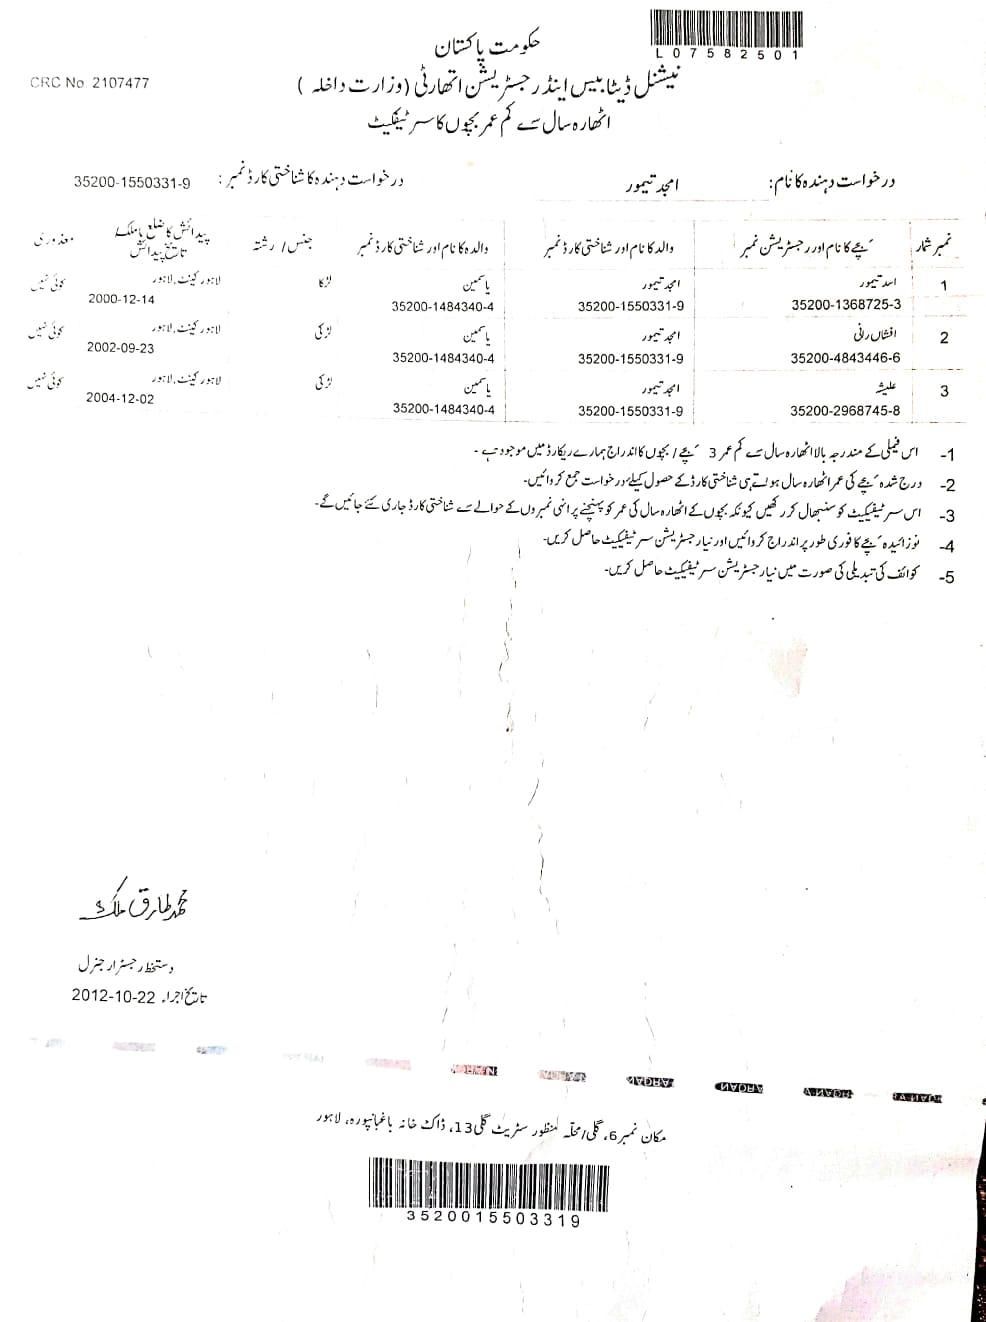 L07582501
حکومت پاکستان
CRC No 2107477
نیشنل ڈیٹا بیس اینڈ رجسٹریشن اتھارٹی (وزارت داخلہ)
اٹھارہ سال سے کم عمر بچوں کا سرٹیفکیٹ
درخواست دہندہ کا نام: امجد تیمور درخواست دہندہ کا شناختی کارڈ نمبر: 35200-1550331-9
نمبر شمار بچے کا نام اور رجسٹریشن نمبر والد کا نام اور شناختی کارڈ نمبر والدہ کا نام اور شناختی کارڈ نمبر جنس / رشتہ پیدائش کا ضلع یا ملک تاریخ پیدائش معذوری
1 اسد تیمور امجد تیمور یاسمین لڑکا لاہور کینٹ، لاہور کوئی نہیں
35200-1368725-3 35200-1550331-9 35200-1484340-4 2000-12-14
2 افشاں رانی امجد تیمور یاسمین لڑکی لاہور کینٹ، لاہور کوئی نہیں
35200-4843446-6 35200-1550331-9 35200-1484340-4 2002-09-23
3 علیشہ امجد تیمور یاسمین لڑکی لاہور کینٹ، لاہور کوئی نہیں
35200-2968745-8 35200-1550331-9 35200-1484340-4 2004-12-02
1- اس فیملی کے مندرجہ بالا اٹھارہ سال سے کم عمر 3 بچے / بچوں کا اندراج ہمارے ریکارڈ میں موجود ہے۔
2- درج شدہ بچے کی عمر اٹھارہ سال ہوتے ہی شناختی کارڈ کے حصول کیلئے درخواست جمع کروائیں۔
3- اس سرٹیفیکیٹ کو سنبھال کر رکھیں کیونکہ بچوں کے اٹھارہ سال کی عمر کو پہنچنے پر انہی نمبروں کے حوالے سے شناختی کارڈ جاری کئے جائیں گے۔
4- نوزائیدہ بچے کا فوری طور پر اندراج کروائیں اور نیا رجسٹریشن سرٹیفیکیٹ حاصل کریں۔
5- کوائف کی تبدیلی کی صورت میں نیا رجسٹریشن سرٹیفیکیٹ حاصل کریں۔
محمد طارق ملک
دستخط رجسٹرار جنرل
تاریخ اجراء 2012-10-22
NADRA NADRA NADRA
مکان نمبر 6، گلی / محلہ منظور سٹریٹ گلی 13، ڈاک خانہ باغبانپورہ، لاہور
3520015503319